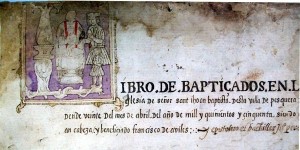 IBRO, DE, BAPTICADOS, EN, L
iglesia de señor sant iuo an baptista, desta villa de pesquera
dende veinte del mes de abril, del año de mill y quinientos y cinquenta, siendo
en cabeza, y beneficiado francisco de aviles: